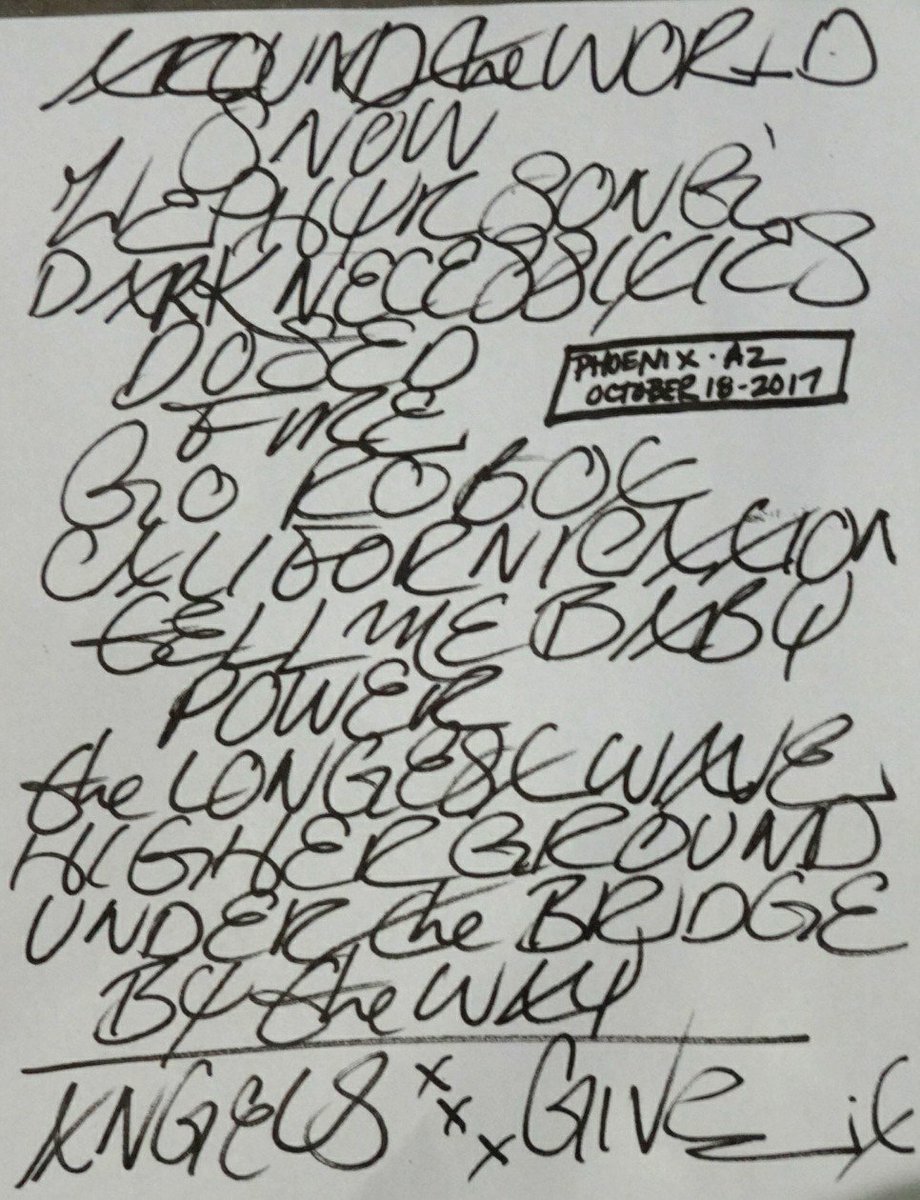 AROUND the WORLD
SNOW
ZEPHYR SONG
DARK NECESSITIES
DOSED
FIRE
GO ROBOT
PHOENIX · AZ
OCTOBER 18-2017
CALIFORNICATION
TELL ME BABY
POWER
the LONGEST WAVE
HIGHER GROUND
UNDER the BRIDGE
BY the WAY
ANGELS x x x GIVE it